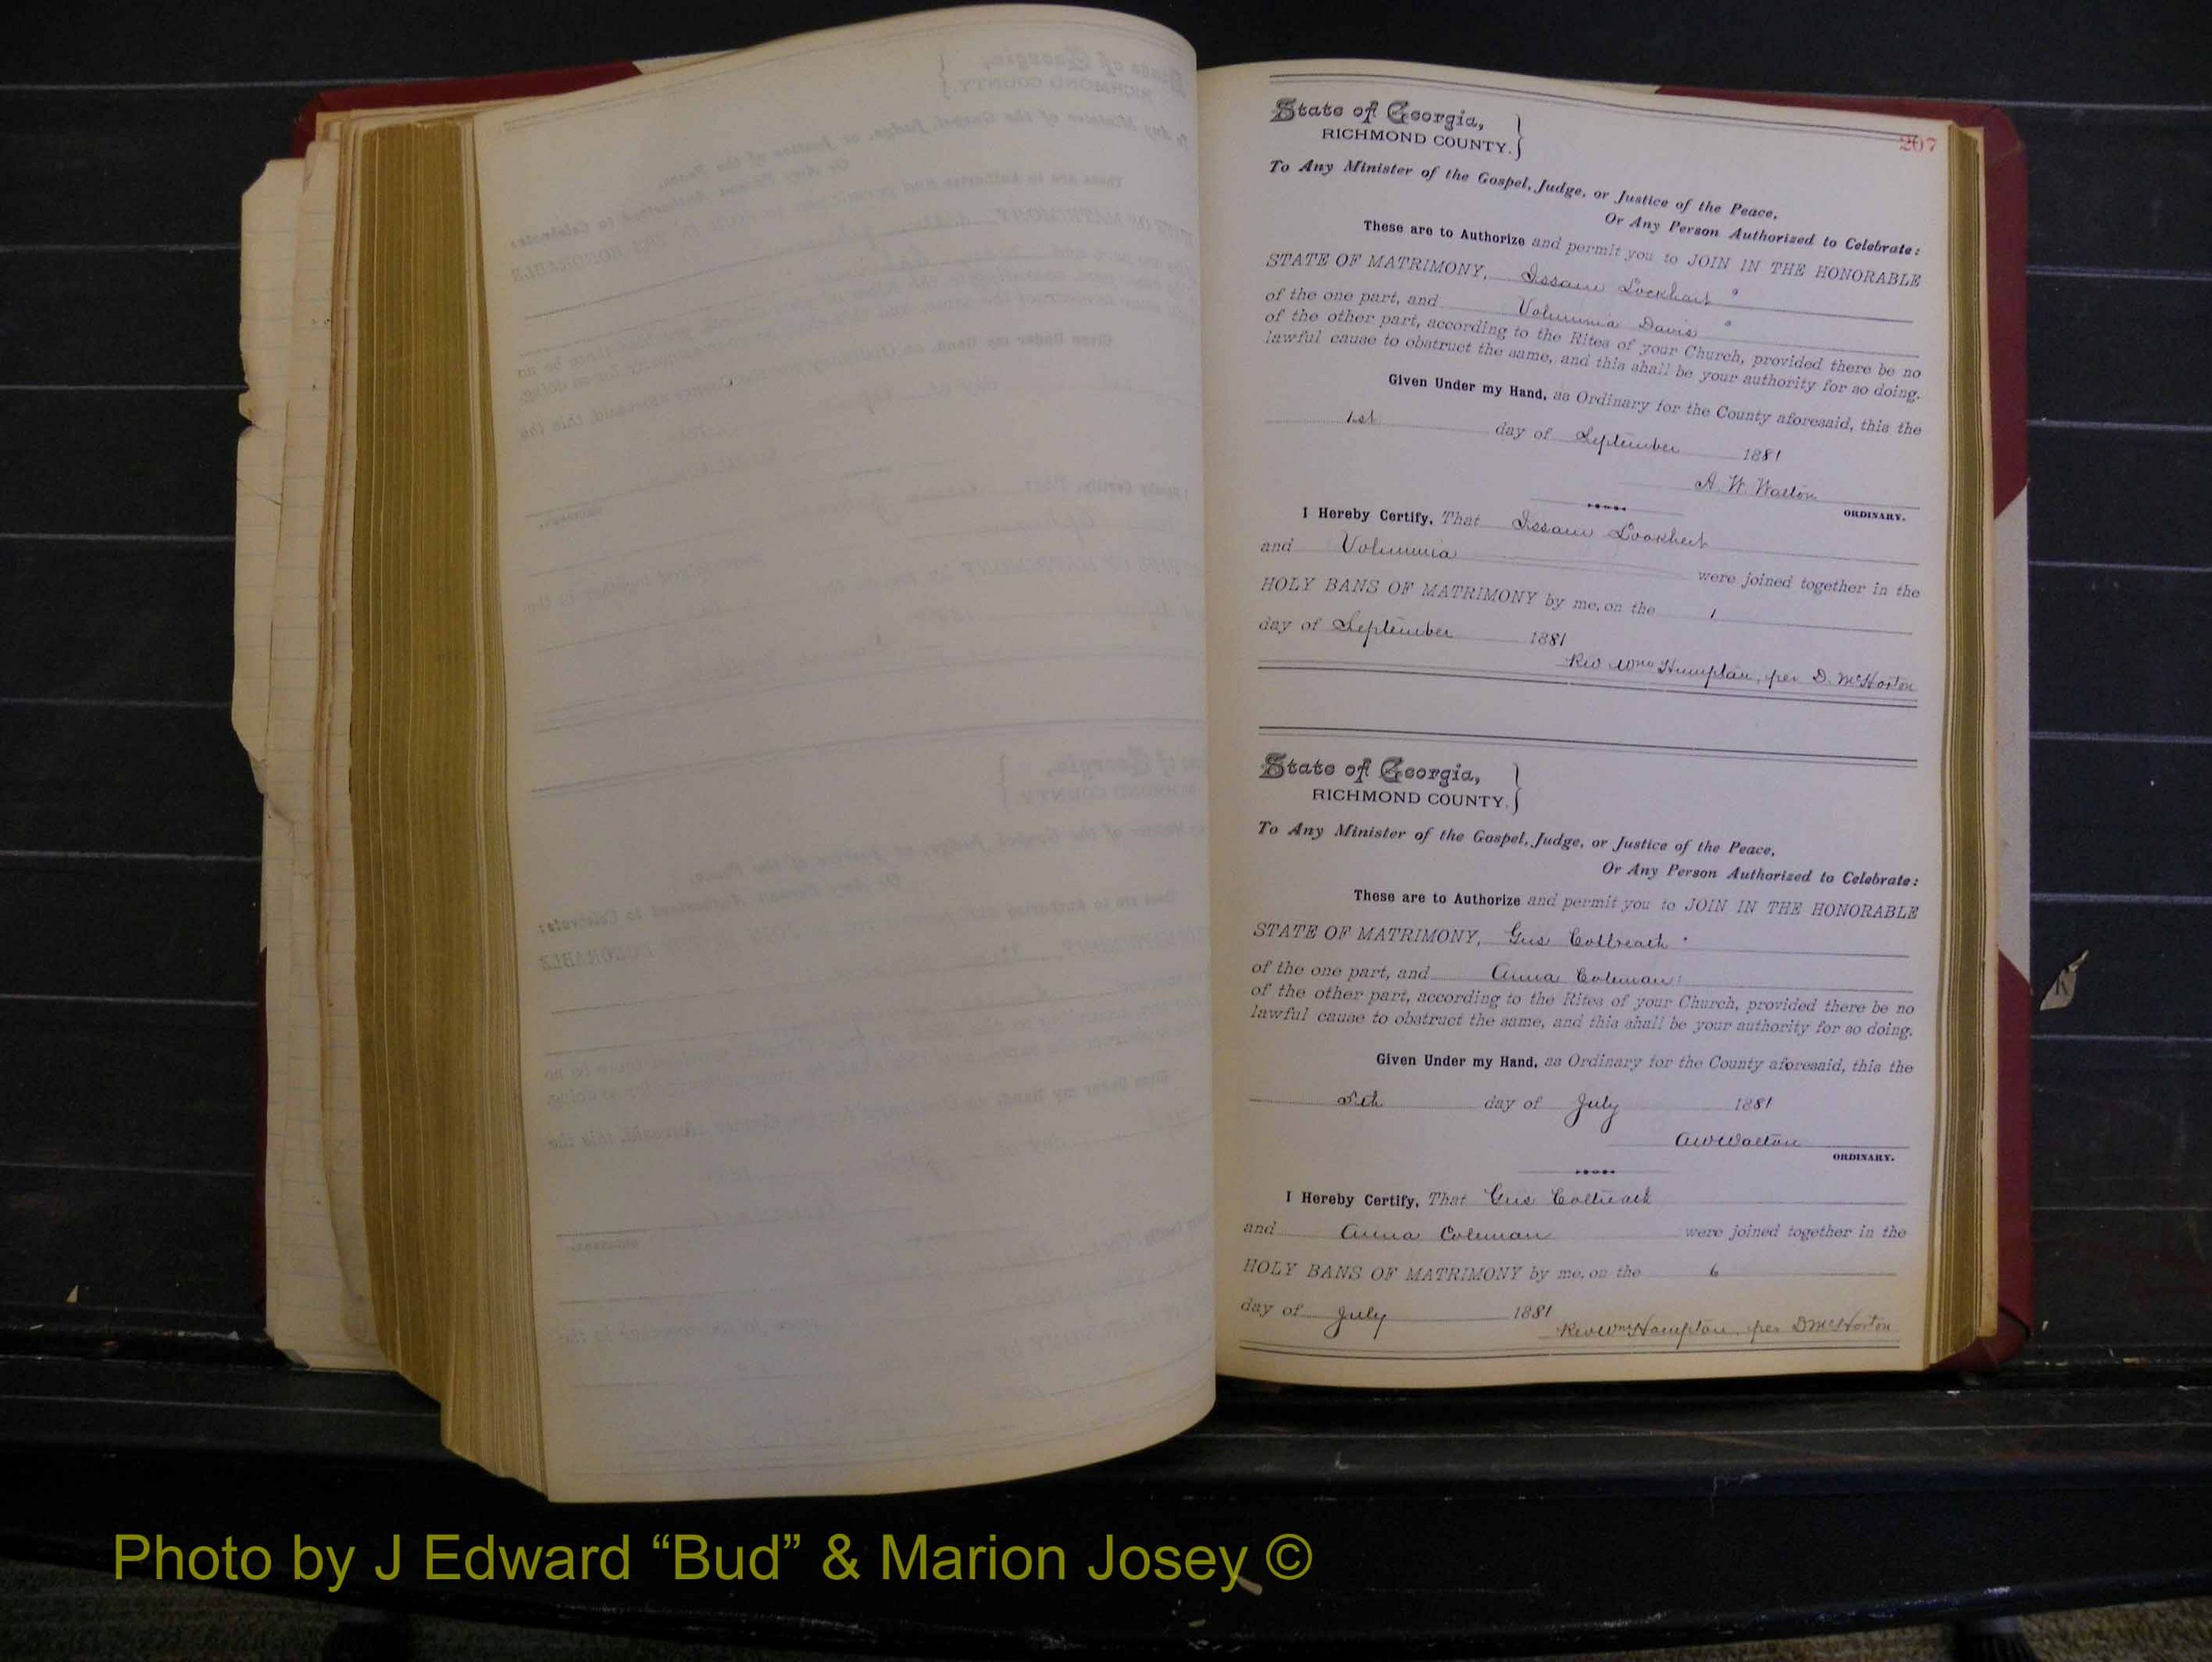 207
State of Georgia,
RICHMOND COUNTY.
To Any Minister of the Gospel, Judge, or Justice of the Peace,
Or Any Person Authorized to Celebrate:
These are to Authorize and permit you to JOIN IN THE HONORABLE
STATE OF MATRIMONY, Issam Lockhart
of the one part, and Volumnia Davis
of the other part, according to the Rites of your Church, provided there be no
lawful cause to obstruct the same, and this shall be your authority for so doing.
Given Under my Hand, as Ordinary for the County aforesaid, this the
1st day of September 1881
A. W. Walton
ORDINARY.
I Hereby Certify, That Issam
and Volumnia were joined together in the
HOLY BANS OF MATRIMONY by me, on the 1
day of September 1881
Rev Wm Humptan, per D. McHorton
State of Georgia,
RICHMOND COUNTY.
To Any Minister of the Gospel, Judge, or Justice of the Peace,
Or Any Person Authorized to Celebrate:
These are to Authorize and permit you to JOIN IN THE HONORABLE
STATE OF MATRIMONY, Gus Coltreath
of the one part, and Anna Coleman
of the other part, according to the Rites of your Church, provided there be no
lawful cause to obstruct the same, and this shall be your authority for so doing.
Given Under my Hand, as Ordinary for the County aforesaid, this the
5th day of July 1881
A W Walton
ORDINARY.
I Hereby Certify, That Gus
and Anna Coleman were joined together in the
HOLY BANS OF MATRIMONY by me, on the 6
day of July 1881
Rev Wm Hamptan, per D McHorton
Photo by J Edward “Bud” & Marion Josey ©